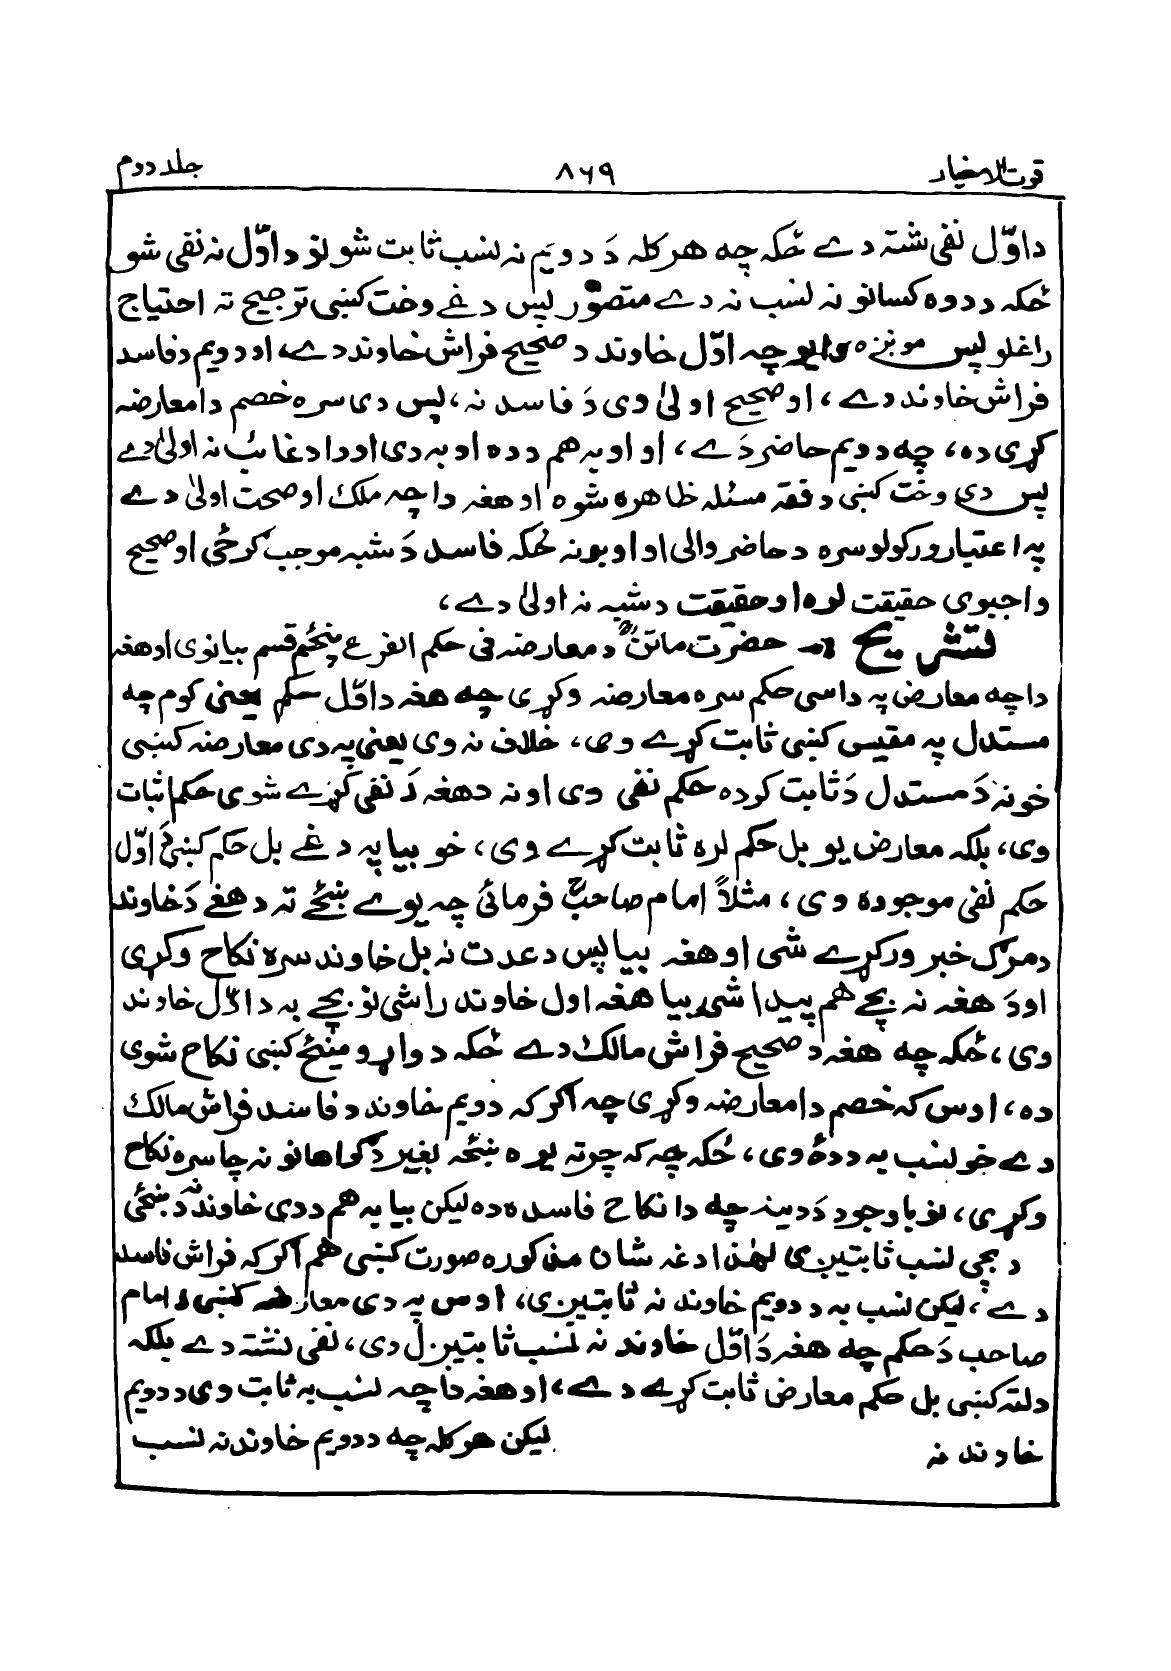 قوت الاخیار ۸۶۹ جلد دوم
د اوّل نفی شتہ دے ځکہ چہ هرکلہ دَ دویم نہ نسب ثابت شو نو د اوّل نہ نفی شو
ځکہ د دوہ کسانو نہ نسب نہ دے متصوّر پس دغے وخت کښې ترجیح تہ احتیاج
راغلو پس مونږہ وایو چہ اوّل خاوند د صحیح فراش خاوند دے، او دویم د فاسد
فراش خاوند دے، او صحیح اولیٰ وی دَ فاسد نہ، پس دی سرہ خصم دا معارضہ
کړی دہ، چہ دویم حاضر دَے، او اوبہ هم د دہ اوبہ دی او دا د غائب نہ اولیٰ دے
پس دی وخت کښې د فقہ مسئلہ ظاهرہ شوہ او هغہ دا چہ ملک او صحت اولیٰ دے
پہ اعتبار ورکولو سرہ د حاضر والی او اوبو نہ ځکہ فاسد دَ شبہ موجب ګرځی او صحیح
واجبوی حقیقت لرہ او حقیقت د شبہ نہ اولیٰ دے،
تشریح :- حضرت ماتنؒ د معارضہ فی حکم الفرع پنځم قسم بیانوی او هغہ
دا چہ معارض پہ داسی حکم سرہ معارضہ وکړی چہ هغہ د اوّل حکم یعنی کوم چہ
مستدل پہ مقیس کښې ثابت کړے وی، خلاف نہ وی یعنی پہ دی معارضہ کښې
خو نہ دَ مستدل دَ ثابت کردہ حکم نفی وی او نہ دهغہ دَ نفی کړے شوی حکم اثبات
وی، بلکہ معارض یو بل حکم لرہ ثابت کړے وی، خو بیا پہ دغے بل حکم کښې دَ اوّل
حکم نفی موجودہ وی، مثلاً امام صاحبؒ فرمائی چہ یوے ښځے تہ د هغے دَ خاوند
د مرګ خبر ورکړے شی او هغہ بیا پس د عدت نہ بل خاوند سرہ نکاح وکړی
او دَ هغہ نہ بچے هم پیدا شی بیا هغہ اول خاوند راشی نو بچے بہ د اوّل خاوند
وی، ځکہ چہ هغہ د صحیح فراش مالک دے ځکہ د وارو مینځ کښې نکاح شوی
دہ، اوس کہ خصم دا معارضہ وکړی چہ اګرکہ دویم خاوند د فاسد فراش مالک
دے خو نسب بہ د دہ وی، ځکہ چہ کہ چرتہ یوہ ښځہ بغیر دَ ګواهانو نہ چا سرہ نکاح
وکړی، نو باوجود دَ دینہ چہ دا نکاح فاسدہ دہ لیکن بیا بہ هم د دی خاوند نہ دَ ښځی
د بچی نسب ثابتیږی لهٰذا دغہ شان مذکورہ صورت کښې هم اګرکہ فراش فاسد
دے، لیکن نسب بہ د دویم خاوند نہ ثابتیږی، اوس پہ دی معارضہ کښې د امام
صاحب دَ حکم چہ هغہ دَ اوّل خاوند نہ نسب ثابتیږل دی، نفی نشتہ دے بلکہ
دلتہ کښې بل حکم معارض ثابت کړے دے، او هغہ دا چہ نسب بہ ثابت وی د دویم
خاوند نہ لیکن هرکلہ چہ د دویم خاوند نہ نسب